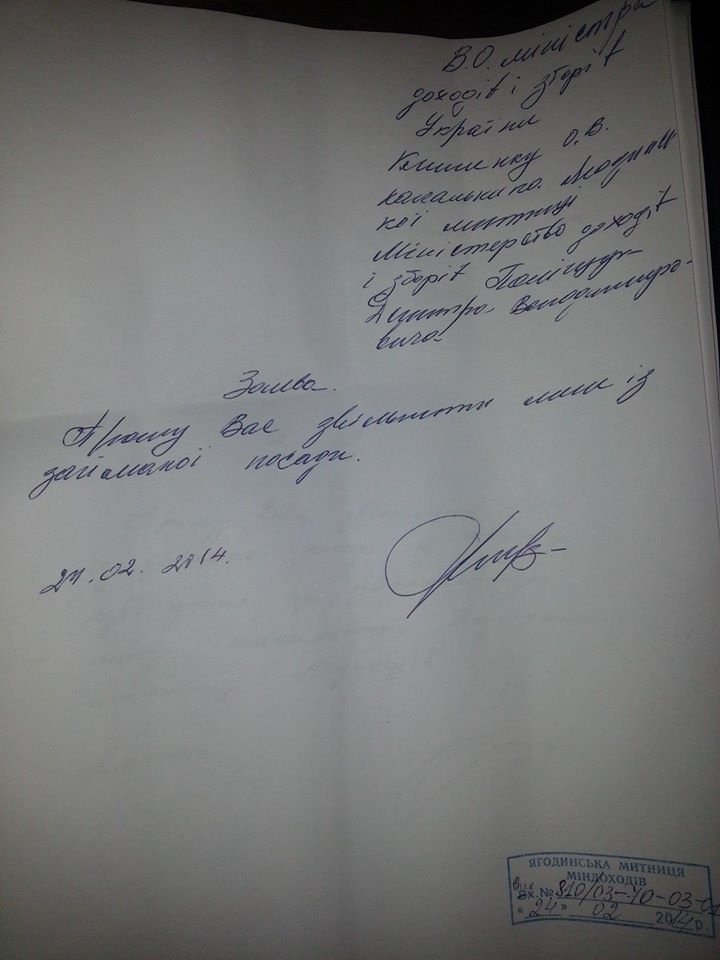 В.О. міністра
доходів і зборів
України
Клименку О.В.
начальника
кої митниці
Міністерство доходів
і зборів
Дмитра Володимиро-
вича
Заява.
Прошу Вас звільнити мене із
займаної посади.
24.02.2014.
ЯГОДИНСЬКА МИТНИЦЯ
МІНДОХОДІВ
Вх.№ 810/03-70-03-01
"24" 02 2014 р.